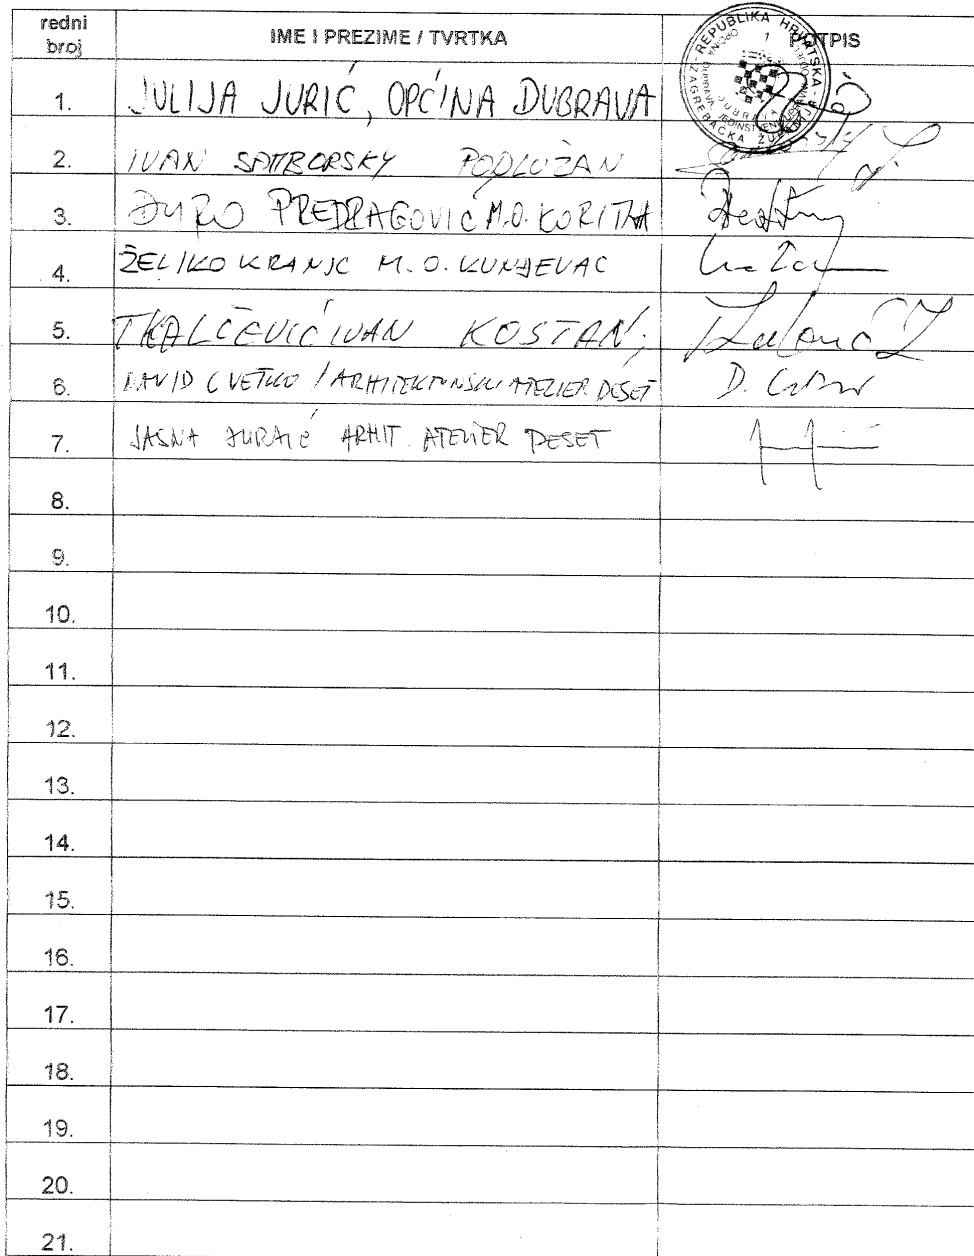 redni broj IME I PREZIME / TVRTKA POTPIS
1. JULIJA JURIĆ, OPĆINA DUBRAVA
2. IVAN PODLUŽAN
3. ĐURO PREDRAGOVIĆ M.O. KORITNA
4. ŽELJKO KRANJC M.O. KUNĐEVAC
5. TKALČEVIĆ IVAN KOSTANJ,
6. DAVID CVETKO / ARHITEKTONSKI ATELIER DESET
7. JASNA JURAIĆ ARHIT. ATELIER DESET
8.
9.
10.
11.
12.
13.
14.
15.
16.
17.
18.
19.
20.
21.
REPUBLIKA HRVATSKA
ZAGREBAČKA ŽUPANIJA
OPĆINA DUBRAVA
1